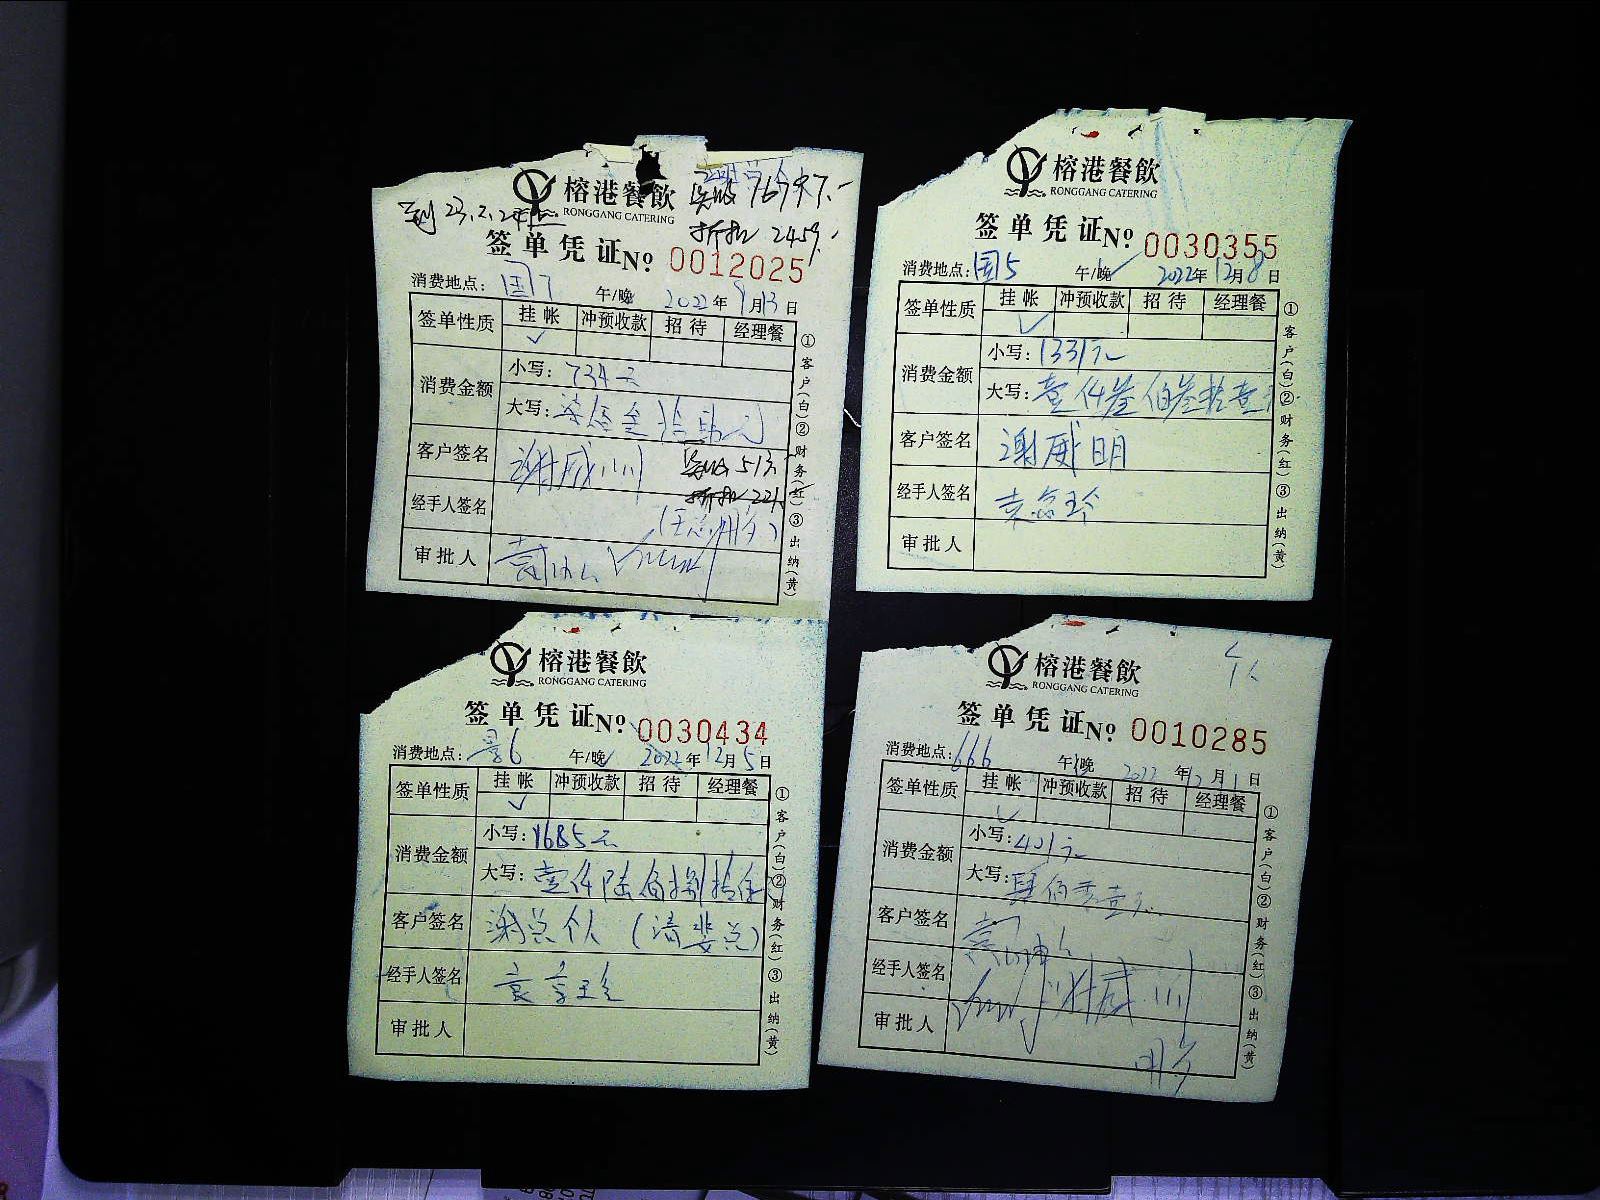 榕港餐飲
RONGGANG CATERING
实收 7675.-
到 23.2.24
折扣 2459.-
签单凭证 No 0012025
消费地点: 国7 午/晚 2022年9月13日
签单性质 挂帐 冲预收款 招待 经理餐
✓
消费金额 小写: 734元
大写: 柒佰叁拾肆元
客户签名 谢威
实收 513
折扣 221
经手人签名
审批人 袁
①客户(白)②财务(红)③出纳(黄)
榕港餐飲
RONGGANG CATERING
签单凭证 No 0030355
消费地点: 国5 午/晚✓ 2022年12月8日
签单性质 挂帐 冲预收款 招待 经理餐
✓
消费金额 小写: 1331元
大写: 壹仟叁佰叁拾壹元
客户签名 谢威明
经手人签名 袁玲
审批人
①客户(白)②财务(红)③出纳(黄)
榕港餐飲
RONGGANG CATERING
签单凭证 No 0030434
消费地点: 景6 午/晚✓ 2022年12月5日
签单性质 挂帐 冲预收款 招待 经理餐
✓
消费金额 小写: 1685元
大写: 壹仟陆佰捌拾伍
客户签名 谢总 (请娄总)
经手人签名 袁
审批人
①客户(白)②财务(红)③出纳(黄)
榕港餐飲
RONGGANG CATERING
签单凭证 No 0010285
消费地点: 666 午/晚 2022年12月1日
签单性质 挂帐 冲预收款 招待 经理餐
✓
消费金额 小写: 401元
大写: 肆佰零壹元
客户签名
经手人签名 谢威
审批人
①客户(白)②财务(红)③出纳(黄)